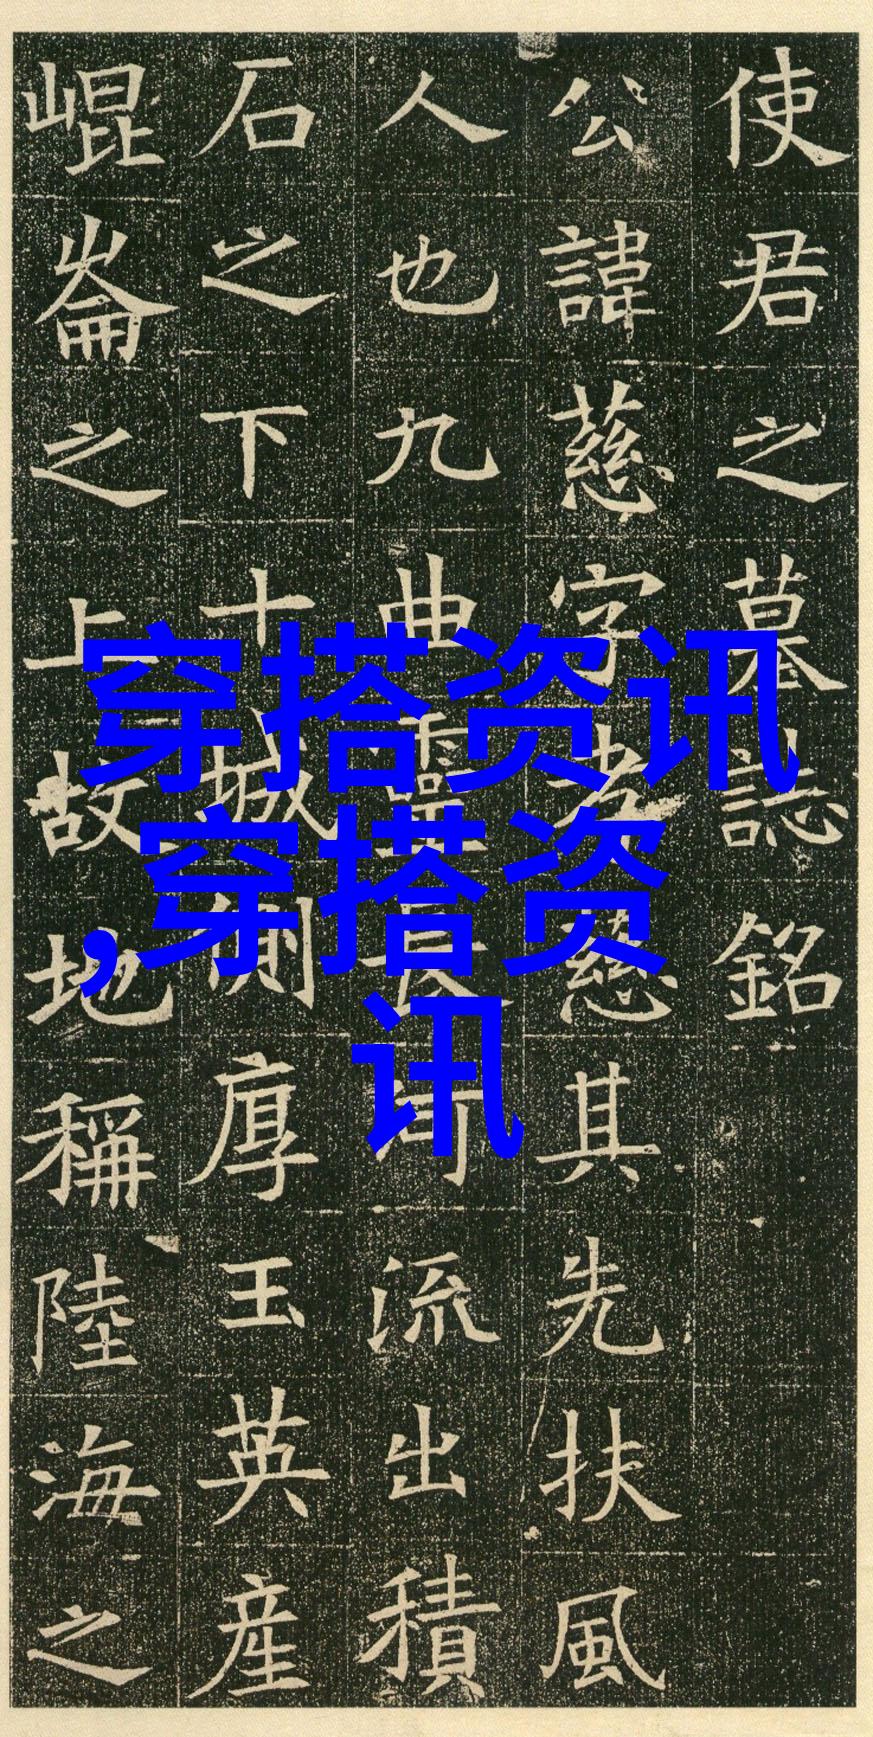 使君之墓誌銘
公諱慈字孝慈其先扶風
人也九曲靈長河流出積
石之下十城側厚玉英産
崐崙之上故地稱陸海之
穿搭资讯
,穿搭资
讯